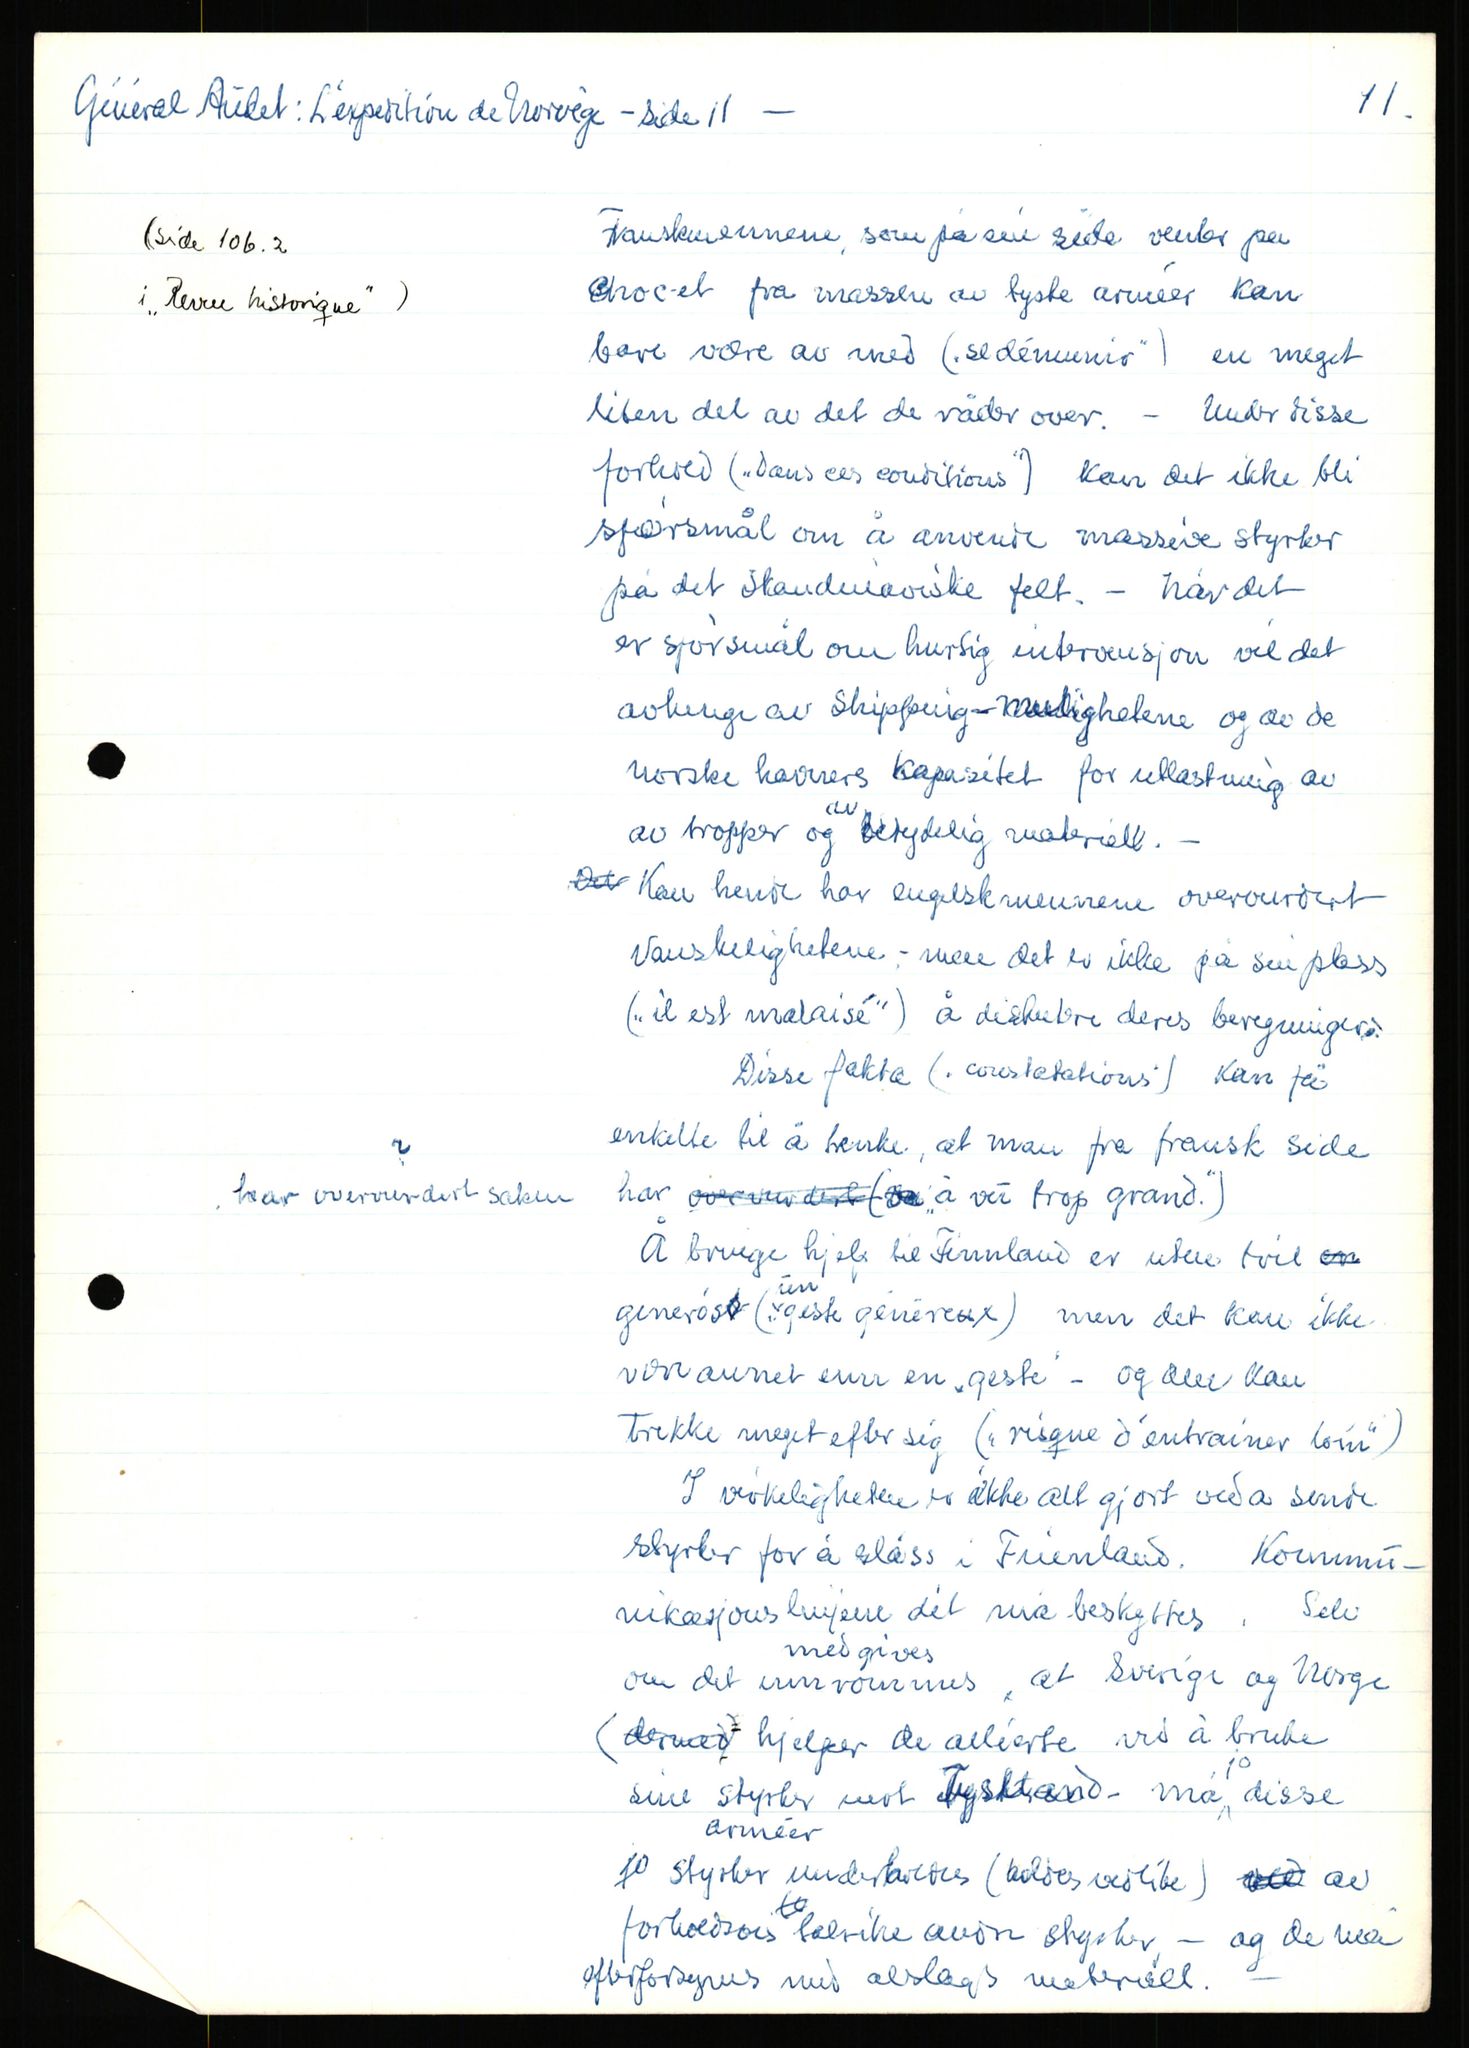 Général Audet: L'expedition de Norvège – side 11 –
11.
(side 106.2
i „Revue historique")
Franskmennene, som på sin side venter på
choc-et fra massen av tyske arméer kan
bare være av med („se démunir") en meget
liten del av det de råder over. – Under disse
forhold („dans ces conditions") kan det ikke bli
spørsmål om å anvende massive styrker
på det skandinaviske felt. – Når det
er spørsmål om hurtig intervensjon vil det
avhenge av Shipping-mulighetene og av de
norske havners kapasitet for utlastning av
av tropper og av betydelig materiell. –
Det Kan hende har engelskmennene overvurdert
Vanskelighetene, – men det er ikke på sin plass
(„il est malaisé") å diskutere deres beregninger.
Disse fakta („constatations") kan få
enkelte til å tenke, at man fra fransk side
har overvurdert („a vu trop grand.")
?
har overvurdert saken
Å bringe hjelp til Finnland er uten tvil en
generøst („un geste généreux) men det kan ikke
være annet enn en „geste" – og den kan
trekke meget efter sig („risque d'entrainer loin")
I virkeligheten er ikke alt gjort ved å sende
styrker for å slåss i Finnland. Kommu-
nikasjonslinjene dit må beskyttes. Selv
medgives
om det innrømmes, at Sverige og Norge
(dermed hjelper de allierte ved å bruke
sine styrker mot Tyskland – må jo disse
arméer
jo styrker underholdes (holdes vedlike) ved av
forholdsvis talrike andre styrker, – og de må
efterforsynes med alslags materiell. –